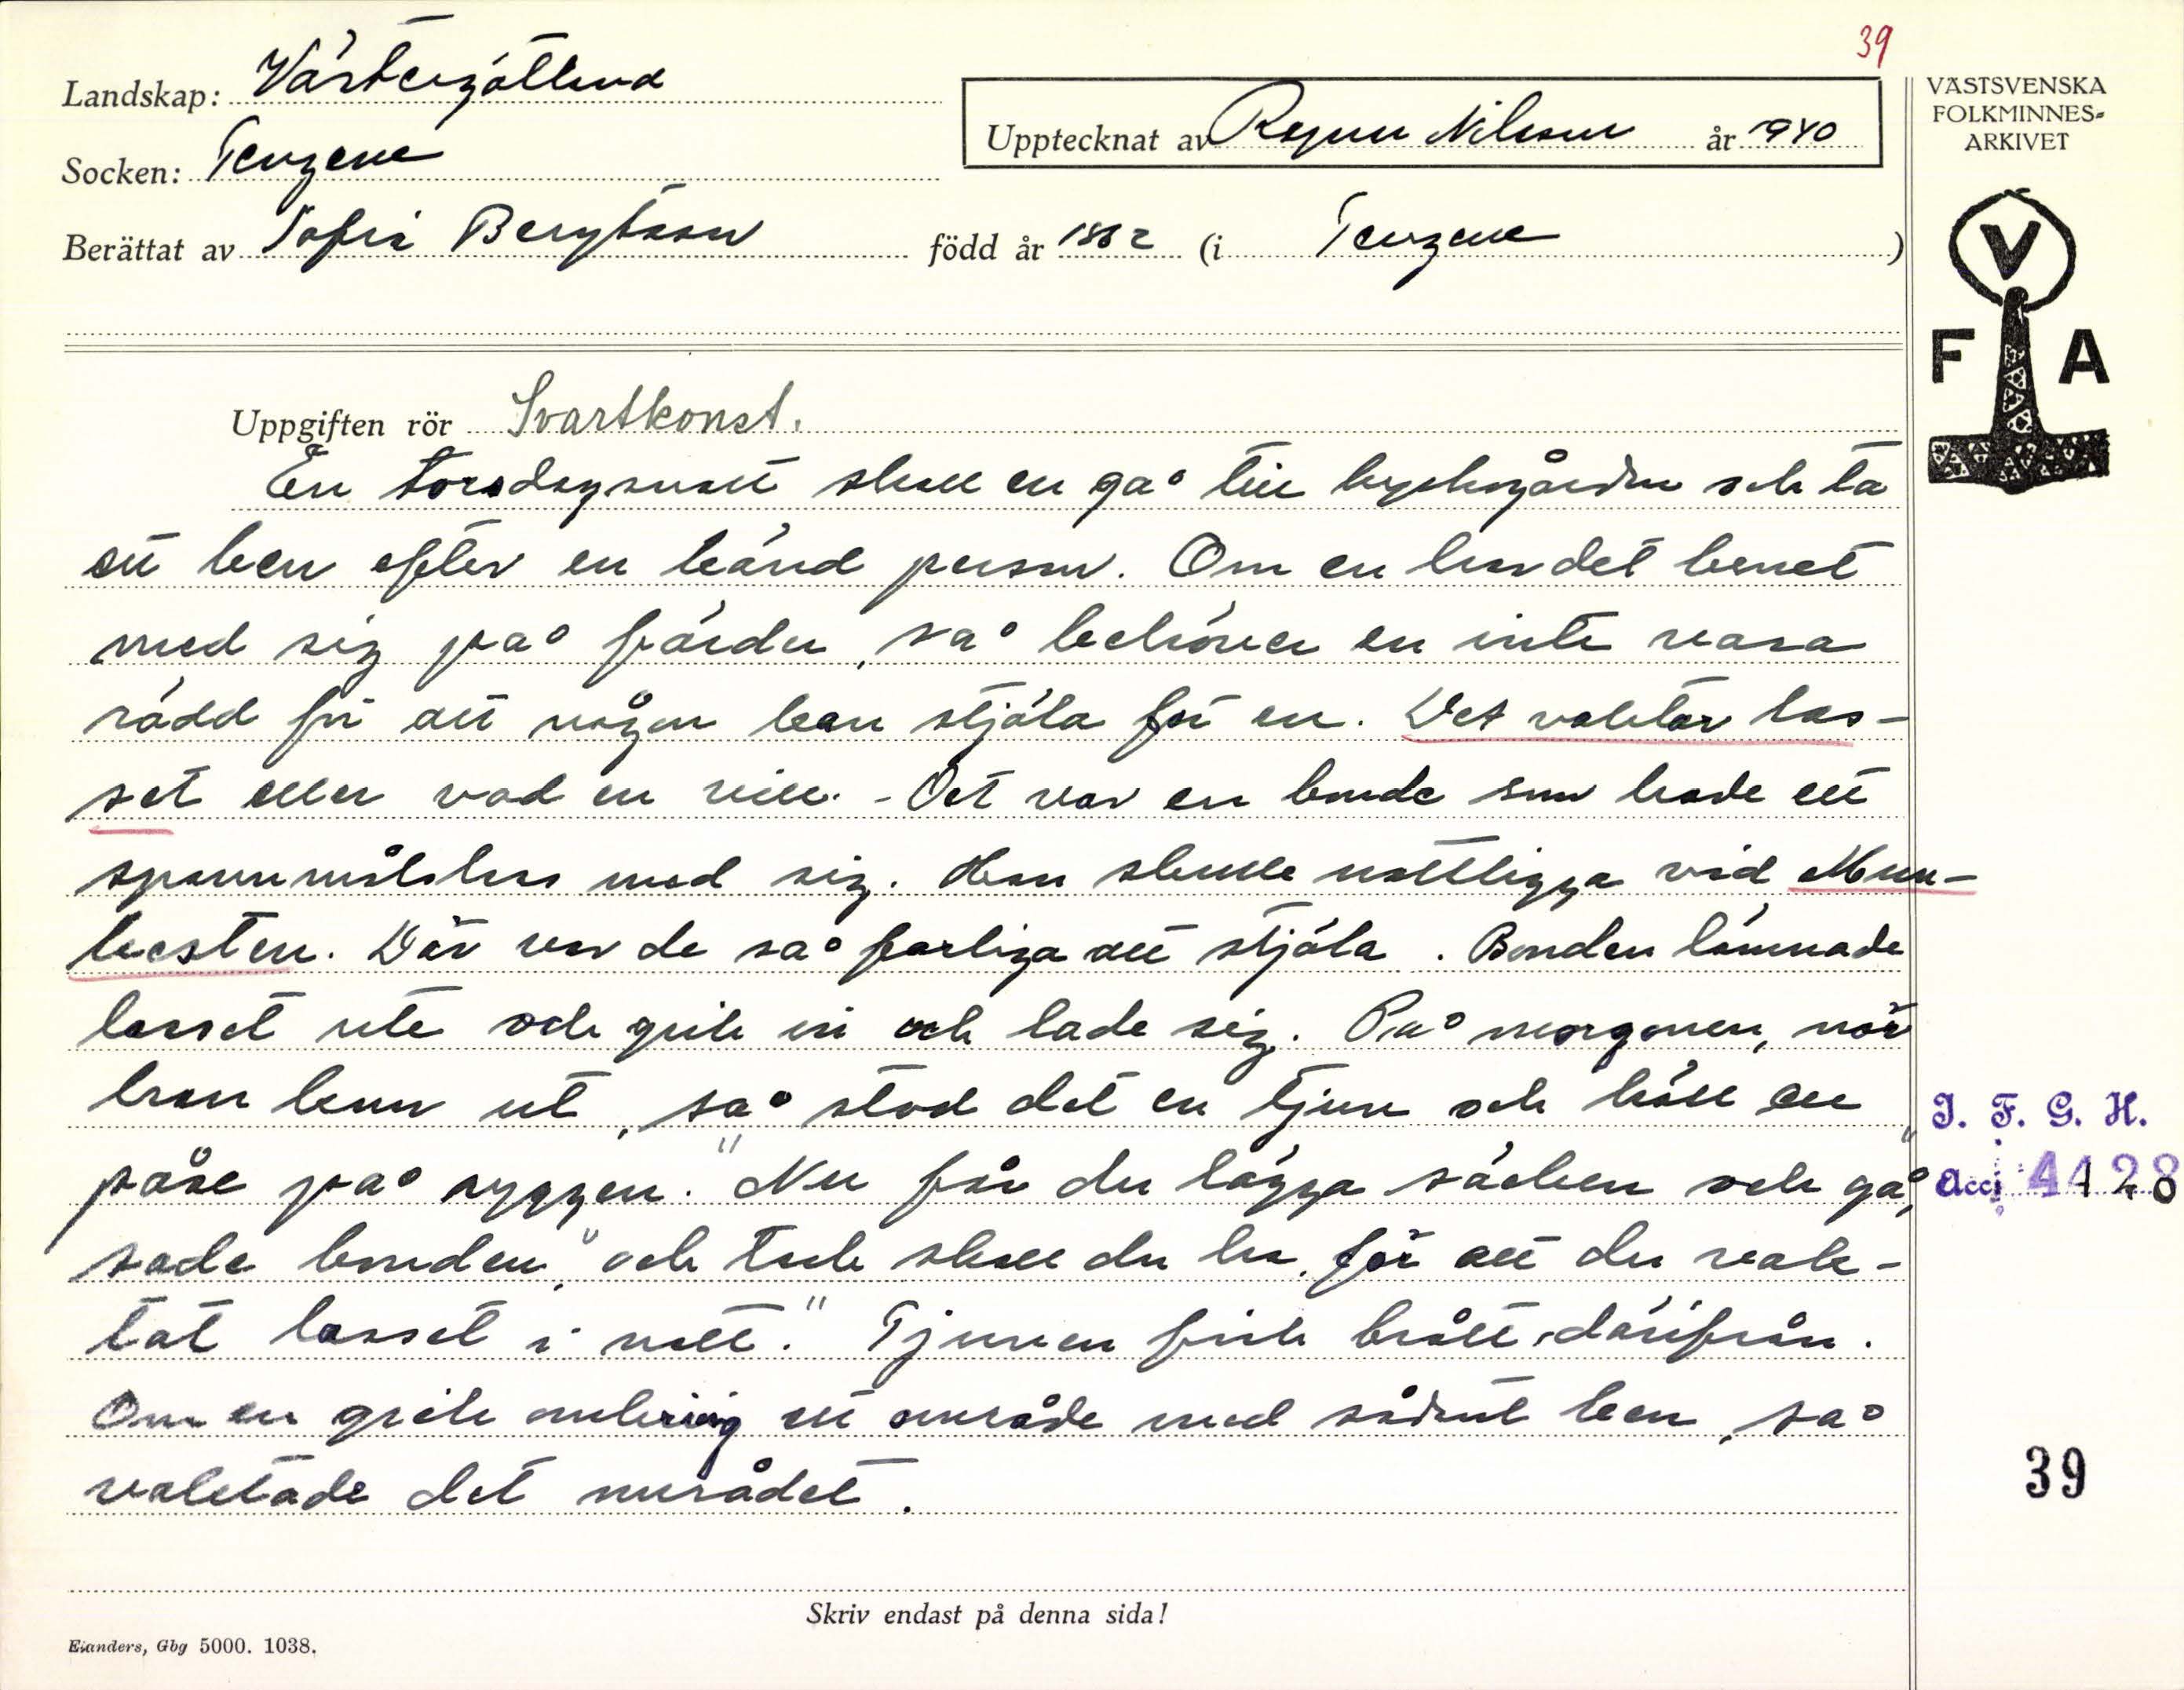 39
Landskap: Västergötland
VÄSTSVENSKA
FOLKMINNES-
ARKIVET
Upptecknat av Ragnar Nilsson år 1940
Socken: Tengene
Berättat av Sofia Bengtsson född år 1862 (i Tengene)
V
F A
Uppgiften rör Svartkonst.
En torsdagsnatt skall en gå till kyrkogården och ta
ett ben efter en känd person. Om en har det benet
med sig på färden, så behöver en inte vara
rädd för att någon kan stjäla för en. Det vaktar las-
set eller vad en vill. - Det var en bonde som hade ett
spannmålslass med sig. Han skulle nattligga vid Mun-
kesten. Där var de så farliga att stjäla. Bonden lämnade
lasset ute och gick in och lade sig. På morgonen, när
han kom ut, så stod det en tjuv och höll en
påse på ryggen. "Nu får du lägga säcken och gå",
sade bonden, "och tack skall du ha, för att du vak-
tat lasset i natt." Tjuven fick brått därifrån.
Om en gick omkring ett område med sådant ben, så
vaktade det området.
I. F. G. H.
Acc. 4428
39
Skriv endast på denna sida!
Elanders, Gbg 5000. 1038.